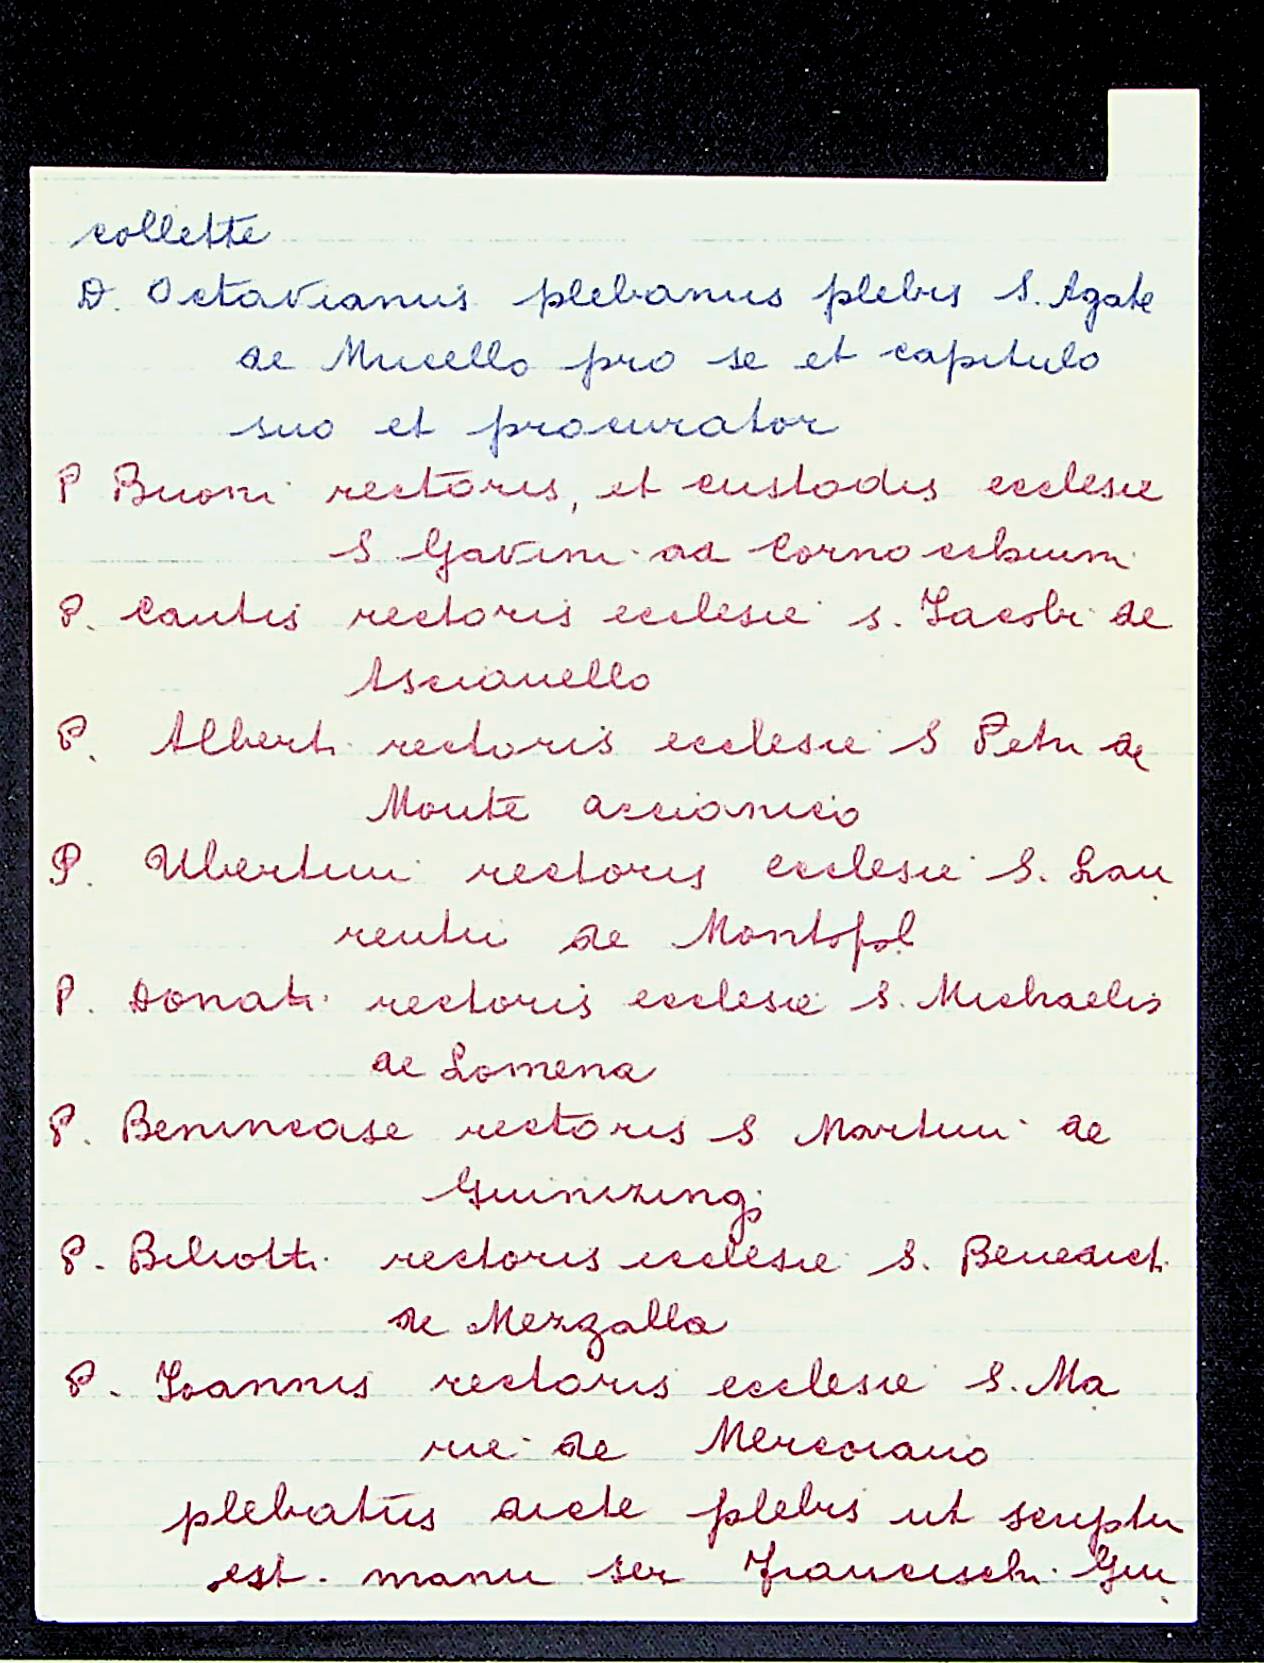 collette
D. Octavianus plebanus plebis S. Agate
de Mucello pro se et capitulo
suo et procurator
P Buoni rectoris, et custodis ecclesie
S Gavini ad Cornocchium
P. Cantis rectoris ecclesie s. Jacobi de
Ascianello
P. Alberti rectoris ecclesie S Petri de
Monte accianico
P. Ubertini rectoris ecclesie S. Lau
rentii de Montepol
P. Donati rectoris ecclesie S. Michaelis
de Lomena
P. Benincase rectoris S Martini de
Guinizingi
P. Biliotti rectoris ecclesie S. Benedicti
de Mezzalla
P. Joannis rectoris ecclesie S. Ma
rie de Mercoiano
plebatus dicte plebis ut scriptu
est manu ser Francischi Gui